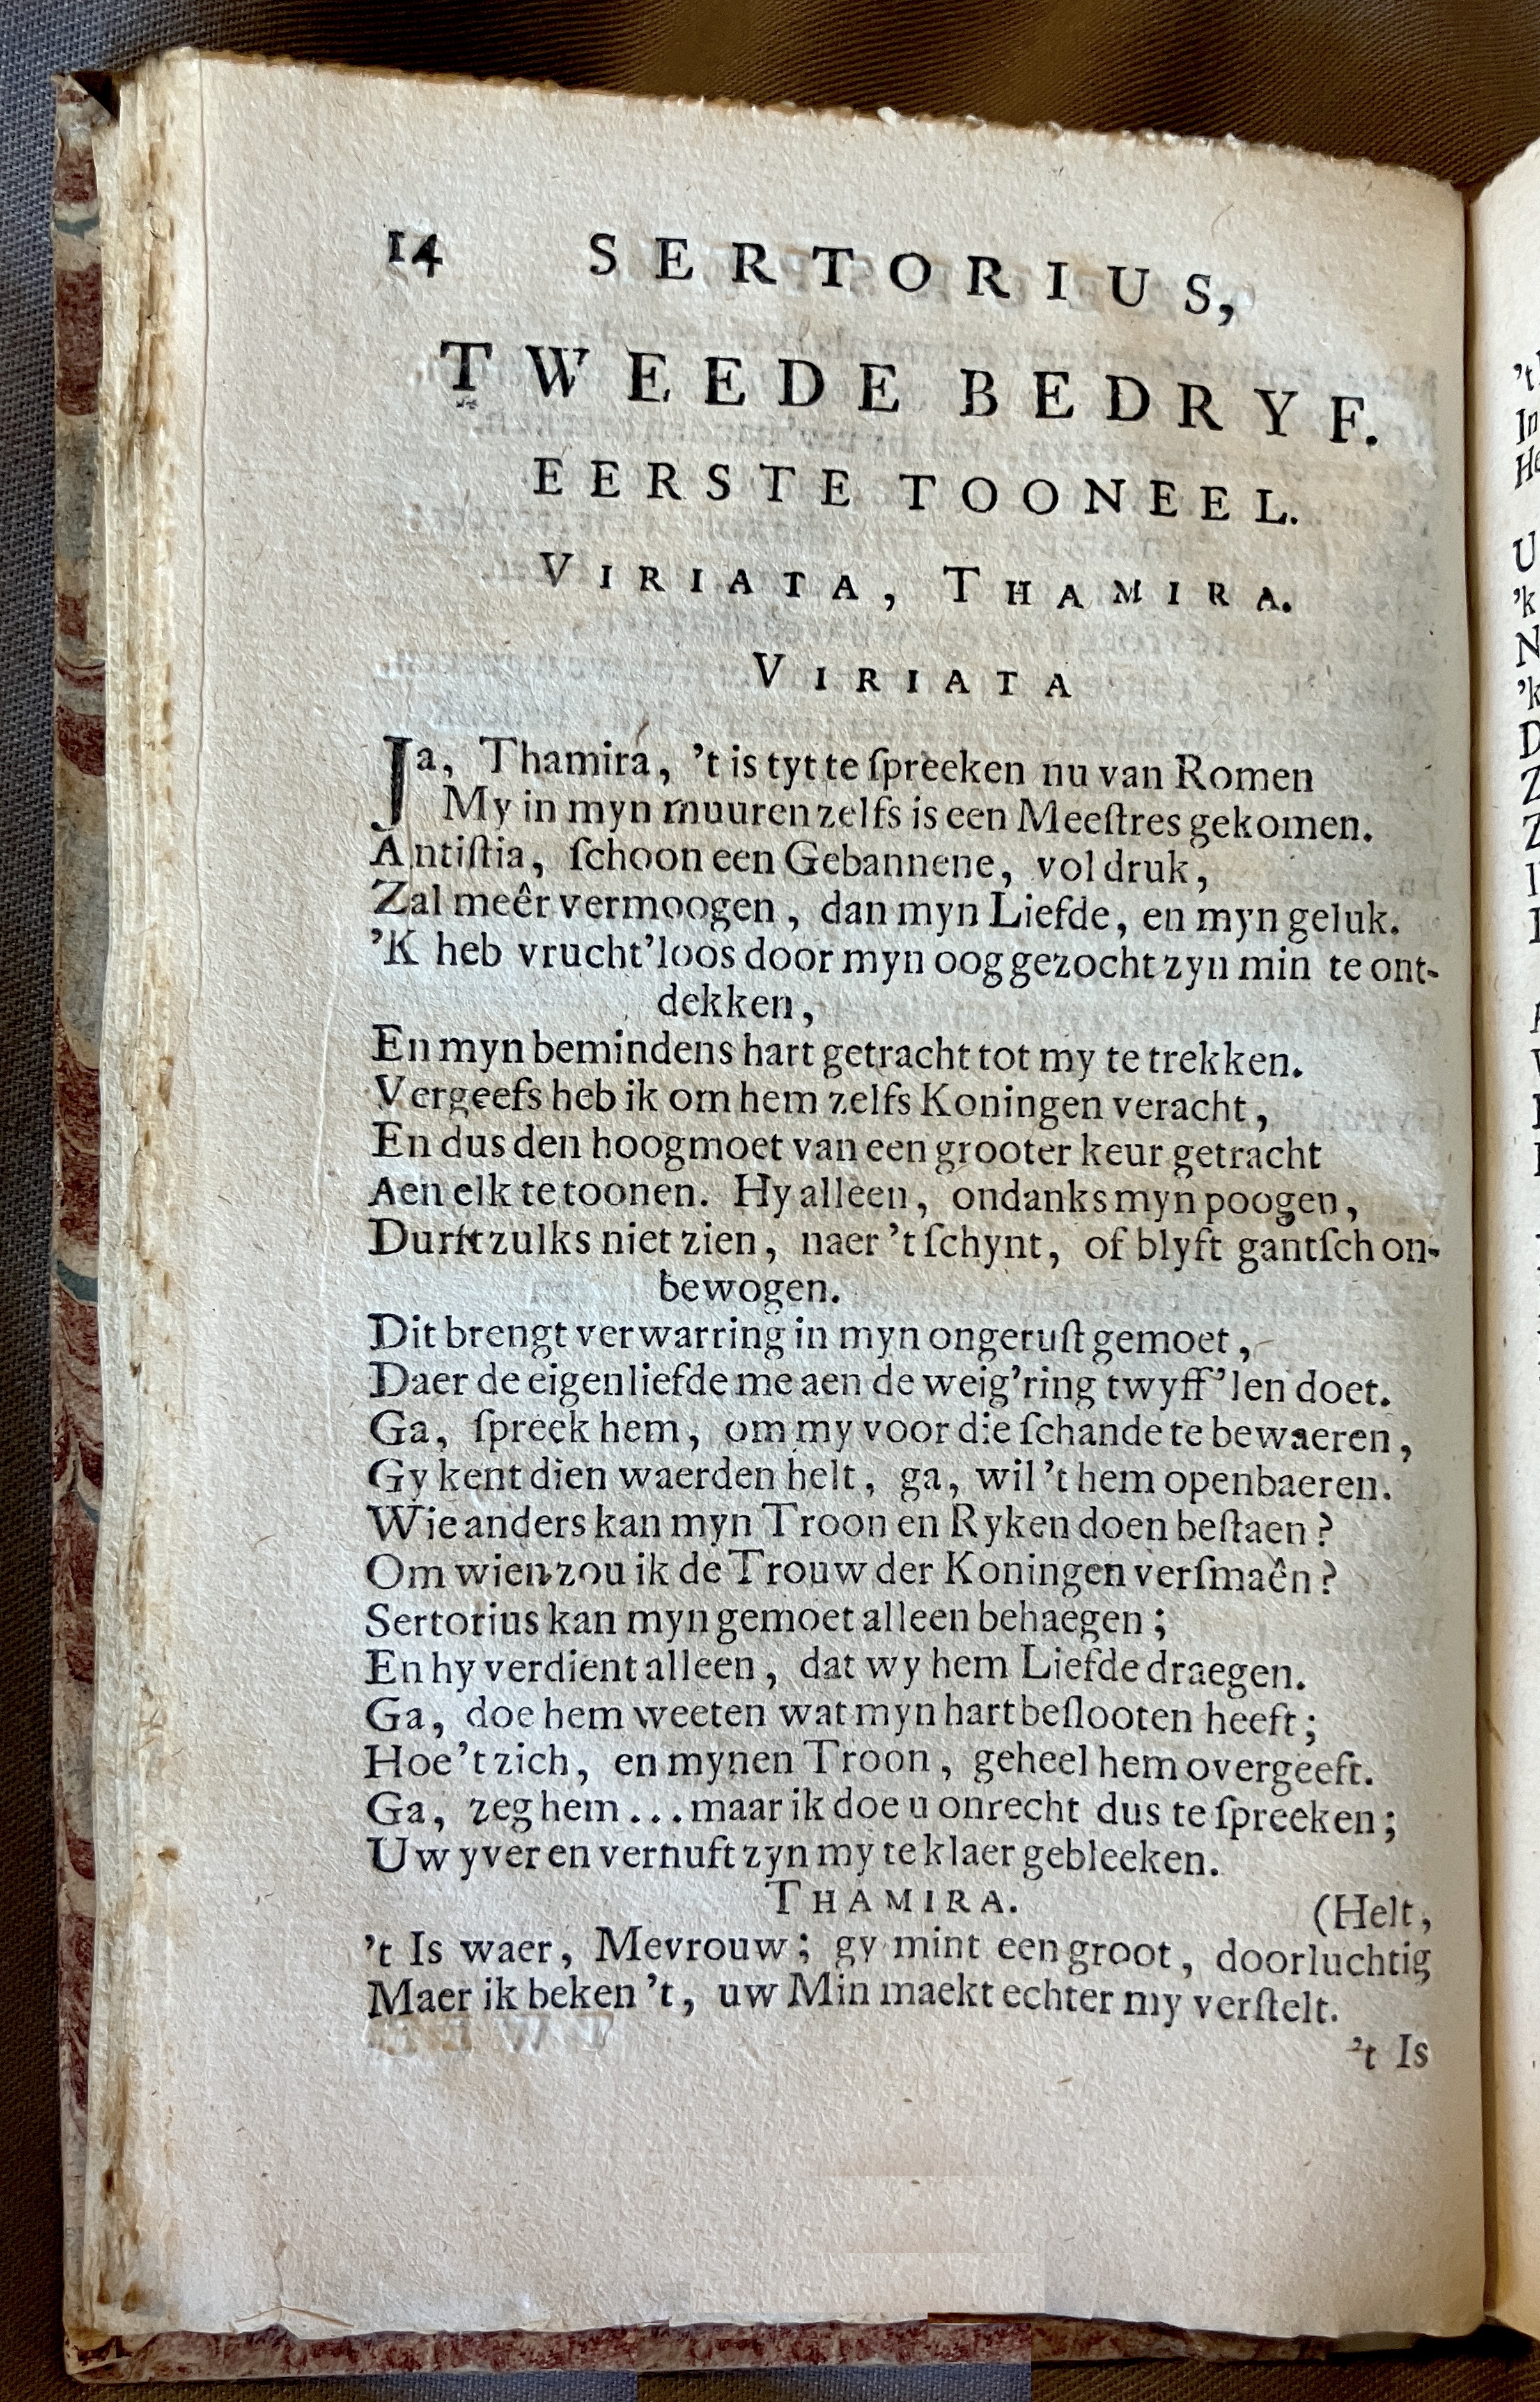 14 SERTORIUS,
TWEEDE BEDRYF.
EERSTE TOONEEL.
VIRIATA, THAMIRA.
VIRIATA
Ja, Thamira, 't is tyt te ſpreeken nu van Romen
My in myn muuren zelfs is een Meeſtres gekomen.
Antiſtia, ſchoon een Gebannene, vol druk,
Zal meêr vermoogen, dan myn Liefde, en myn geluk.
'K heb vrucht'loos door myn oog gezocht zyn min te ont-
dekken,
En myn bemindens hart getracht tot my te trekken.
Vergeefs heb ik om hem zelfs Koningen veracht,
En dus den hoogmoet van een grooter keur getracht
Aen elk te toonen. Hy alleen, ondanks myn poogen,
Durft zulks niet zien, naer 't ſchynt, of blyft gantſch on-
bewogen.
Dit brengt verwarring in myn ongeruſt gemoet,
Daer de eigenliefde me aen de weig'ring twyff'len doet.
Ga, ſpreek hem, om my voor die ſchande te bewaeren,
Gy kent dien waerden helt, ga, wil 't hem openbaeren.
Wie anders kan myn Troon en Ryken doen beſtaen?
Om wien zou ik de Trouw der Koningen verſmaên?
Sertorius kan myn gemoet alleen behaegen;
En hy verdient alleen, dat wy hem Liefde draegen.
Ga, doe hem weeten wat myn hart beſlooten heeft;
Hoe 't zich, en mynen Troon, geheel hem overgeeft.
Ga, zeg hem... maar ik doe u onrecht dus te ſpreeken;
Uw yver en vernuft zyn my te klaer gebleeken.
THAMIRA. (Helt,
't Is waer, Mevrouw; gy mint een groot, doorluchtig
Maer ik beken 't, uw Min maekt echter my verſtelt.
't Is